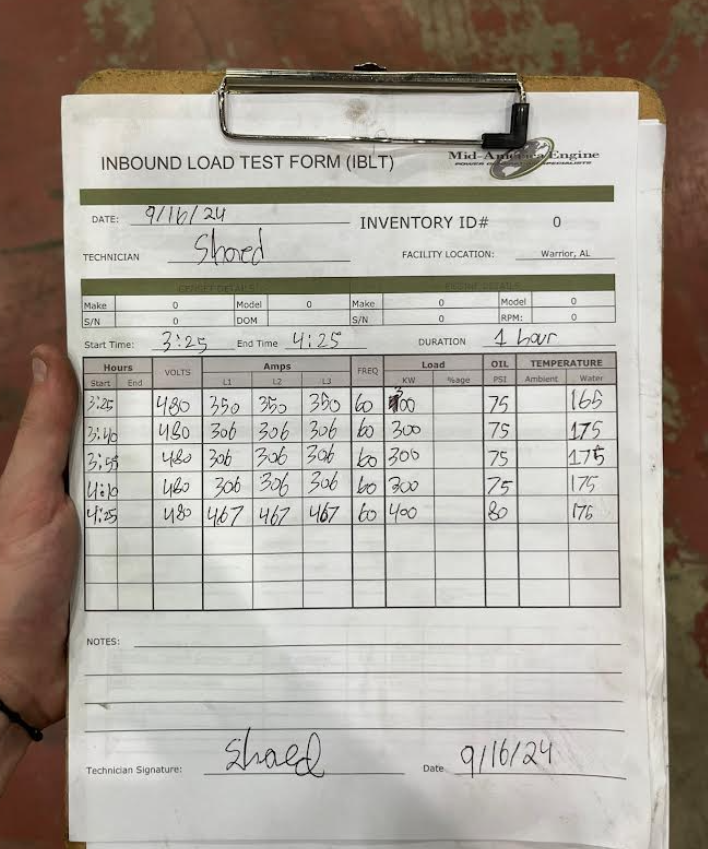 INBOUND LOAD TEST FORM (IBLT)
Mid-America Engine
DATE: 9/16/24
INVENTORY ID# 0
TECHNICIAN
FACILITY LOCATION: Warrior, AL
GENSET DETAILS ENGINE DETAILS
Make 0 Model 0 Make 0 Model 0
S/N 0 DOM S/N 0 RPM: 0
Start Time: 3:25 End Time 4:25 DURATION 1 hour
Hours VOLTS Amps FREQ Load OIL TEMPERATURE
Start End L1 L2 L3 KW %age PSI Ambient Water
3:25 480 350 350 350 60 300 75 165
3:40 480 306 306 306 60 300 75 175
3:55 480 306 306 306 60 300 75 175
4:10 480 306 306 306 60 300 75 175
4:25 480 467 467 467 60 400 80 176
NOTES:
Technician Signature: Date 9/16/24